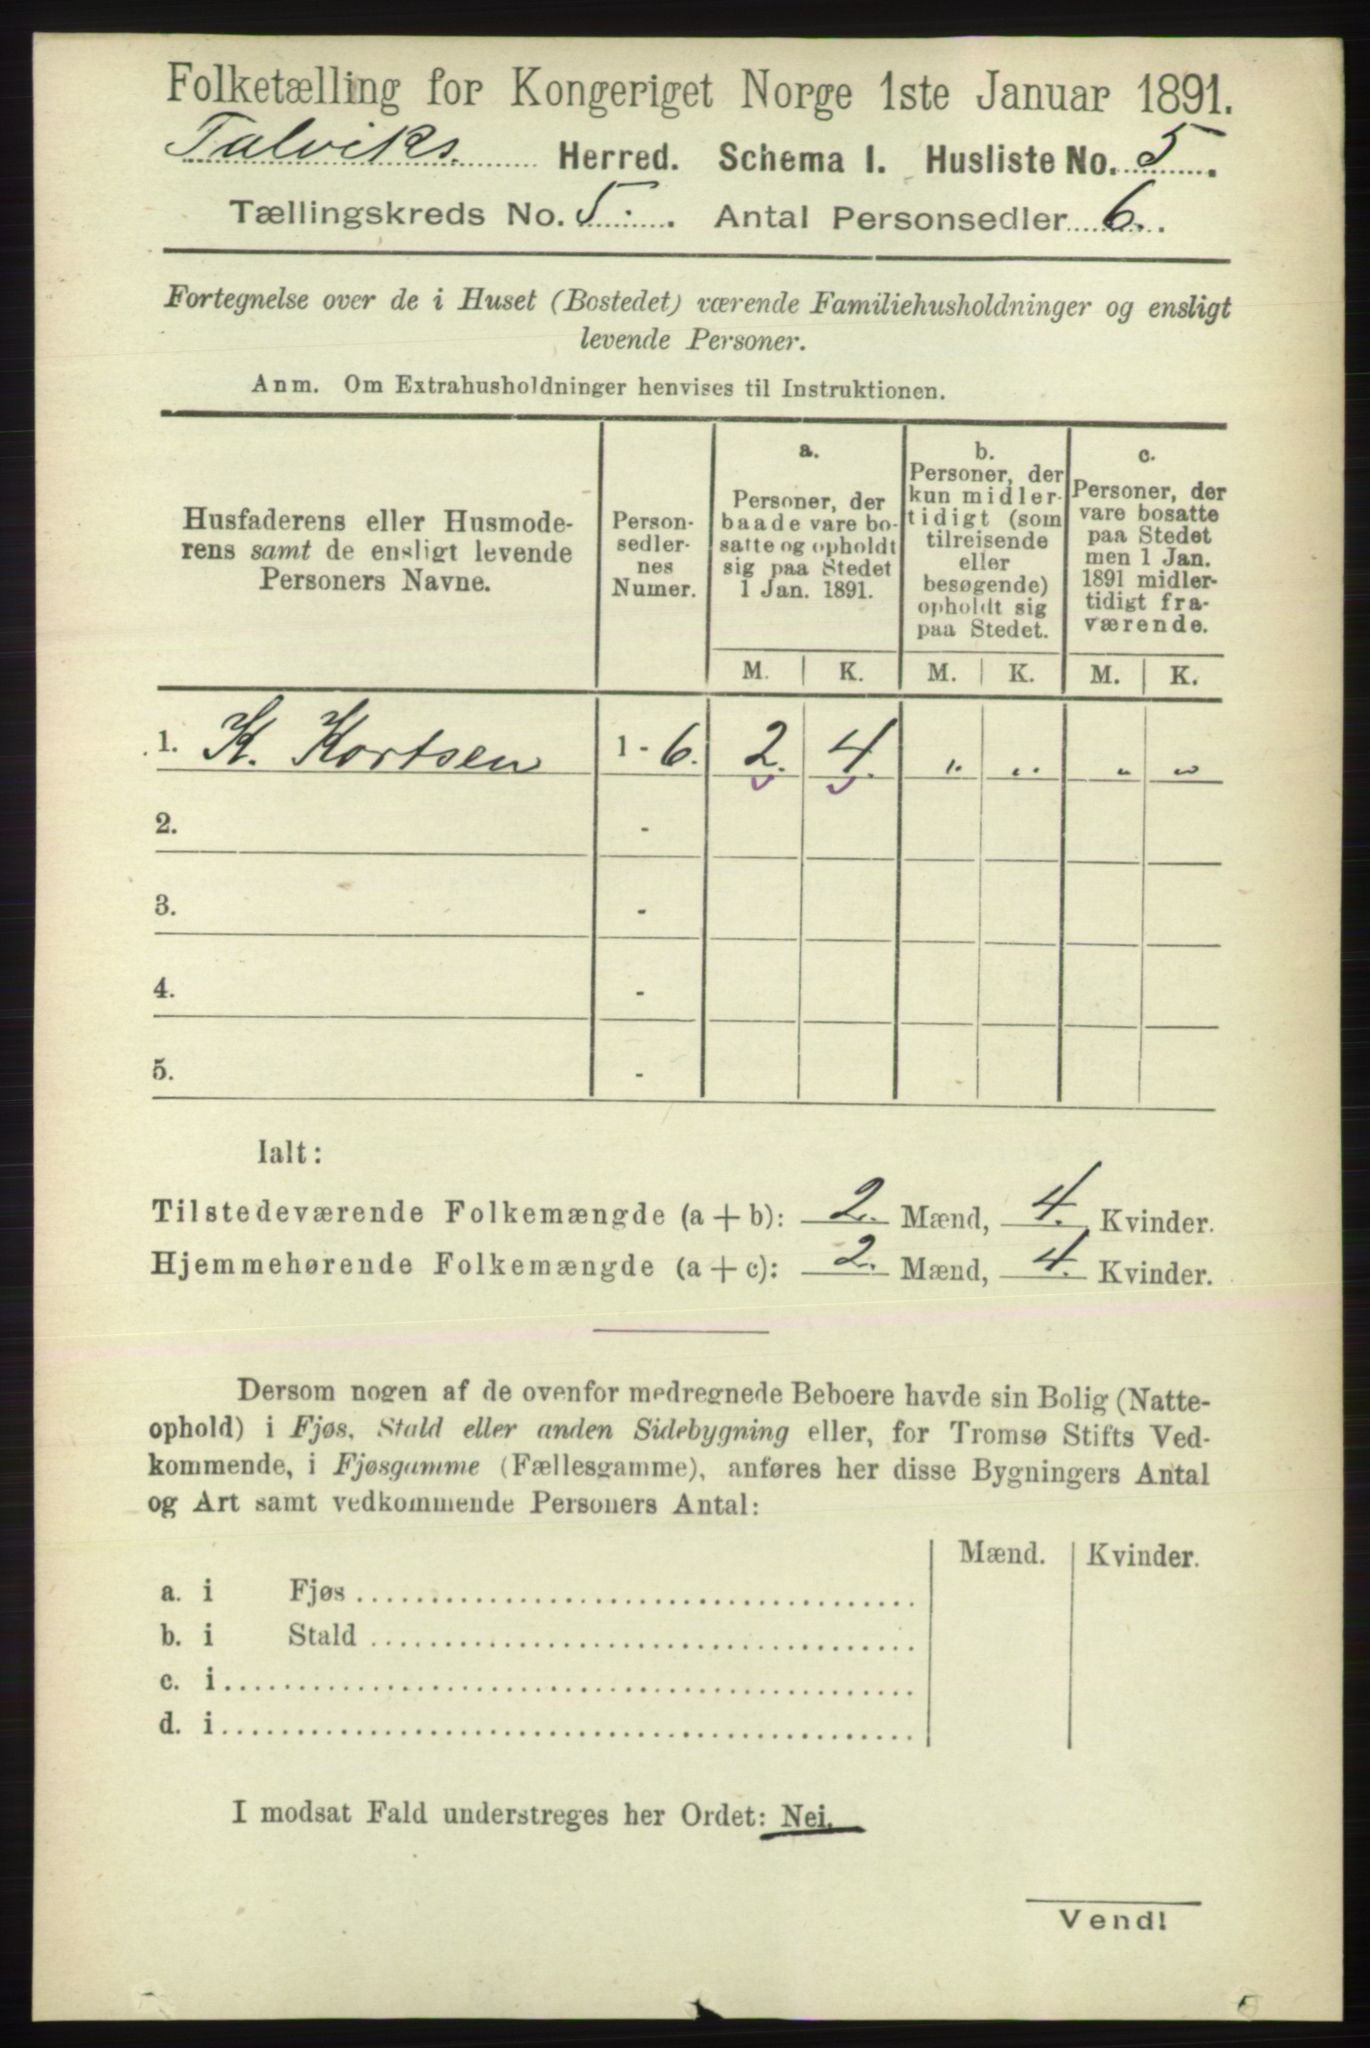 Folketælling for Kongeriget Norge 1ste Januar 1891.
Talviks Herred. Schema I. Husliste No. 5.
Tællingskreds No. 5. Antal Personsedler 6.
Fortegnelse over de i Huset (Bostedet) værende Familiehusholdninger og ensligt
levende Personer.
Anm. Om Extrahusholdninger henvises til Instruktionen.
Husfaderens eller Husmode-
rens samt de ensligt levende
Personers Navne.
Person-
sedler-
nes
Numer.
a.
Personer, der
baade vare bo-
satte og opholdt
sig paa Stedet
1 Jan. 1891.
b.
Personer, der
kun midler-
tidigt (som
tilreisende
eller
besøgende)
opholdt sig
paa Stedet.
c.
Personer, der
vare bosatte
paa Stedet
men 1 Jan.
1891 midler-
tidigt fra-
værende.
M. K. M. K. M. K.
1. K. Kortsen 1 - 6. 2. 4. " " " "
2. -
3. -
4. -
5. -
Ialt:
Tilstedeværende Folkemængde (a + b): 2. Mænd, 4. Kvinder.
Hjemmehørende Folkemængde (a + c): 2. Mænd, 4. Kvinder.
Dersom nogen af de ovenfor medregnede Beboere havde sin Bolig (Natte-
ophold) i Fjøs, Stald eller anden Sidebygning eller, for Tromsø Stifts Ved-
kommende, i Fjøsgamme (Fællesgamme), anføres her disse Bygningers Antal
og Art samt vedkommende Personers Antal:
Mænd. Kvinder.
a. i Fjøs
b. i Stald
c. i
d. i
I modsat Fald understreges her Ordet: Nei.
Vend!